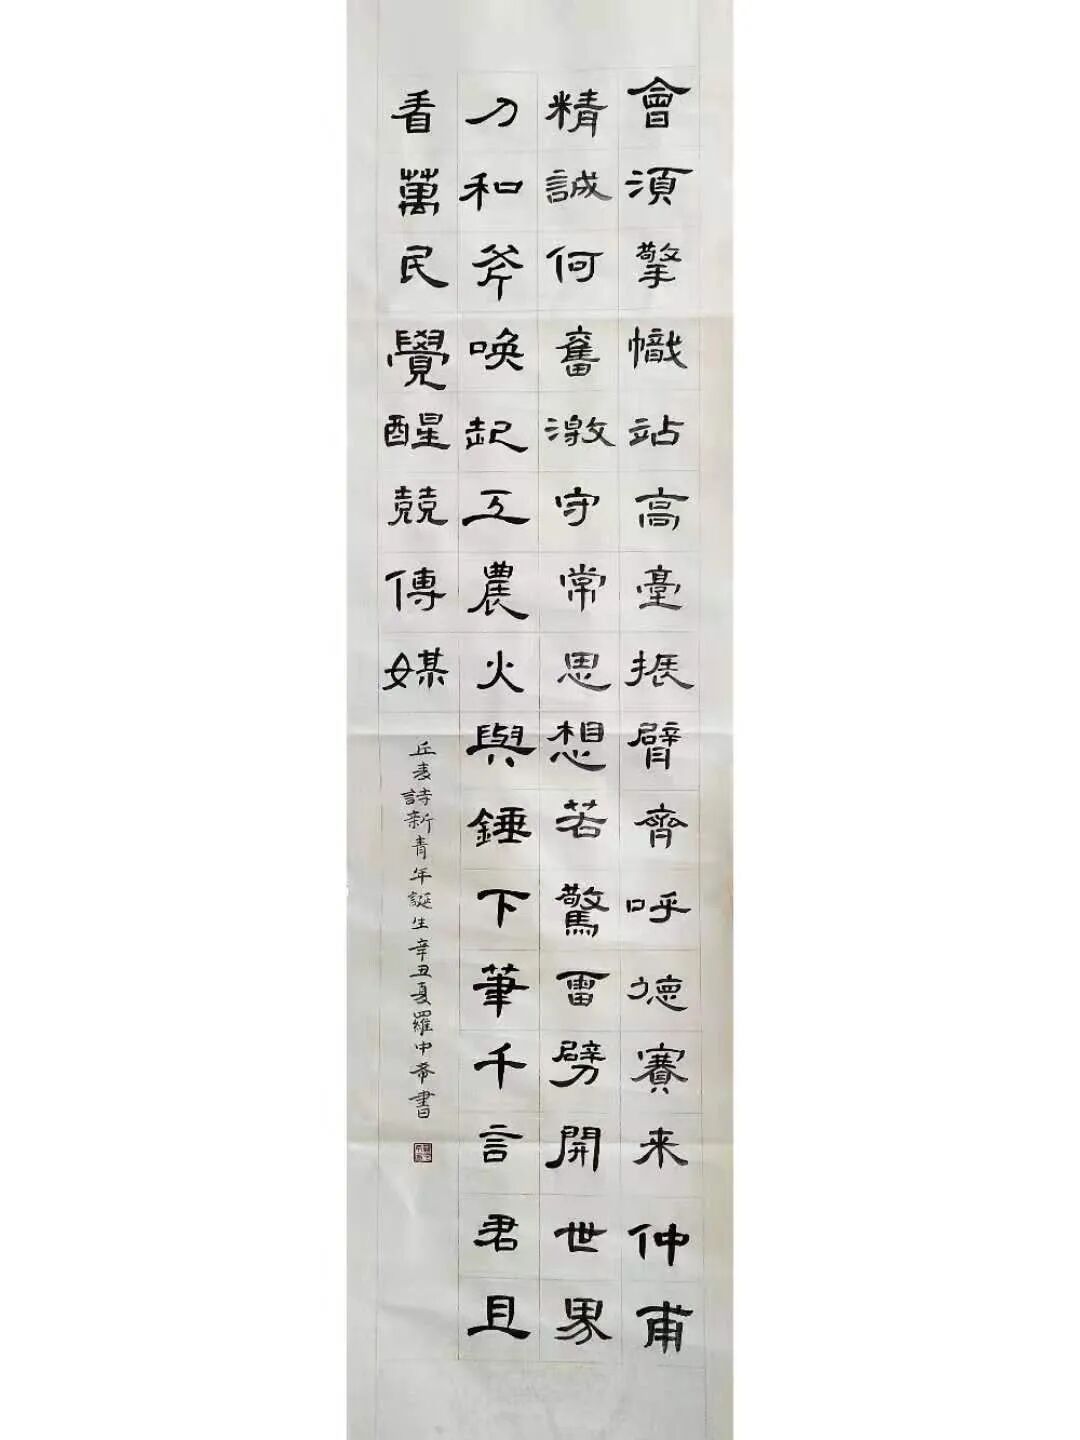 會須擎幟站高臺振臂齊呼德賽来仲甫
精誠何奮激守常思想若驚雷劈開世界
刀和斧喚起工農火與錘下筆千言君且
看萬民覺醒競傳媒
丘表詩新青年誕生辛丑夏羅中帝書